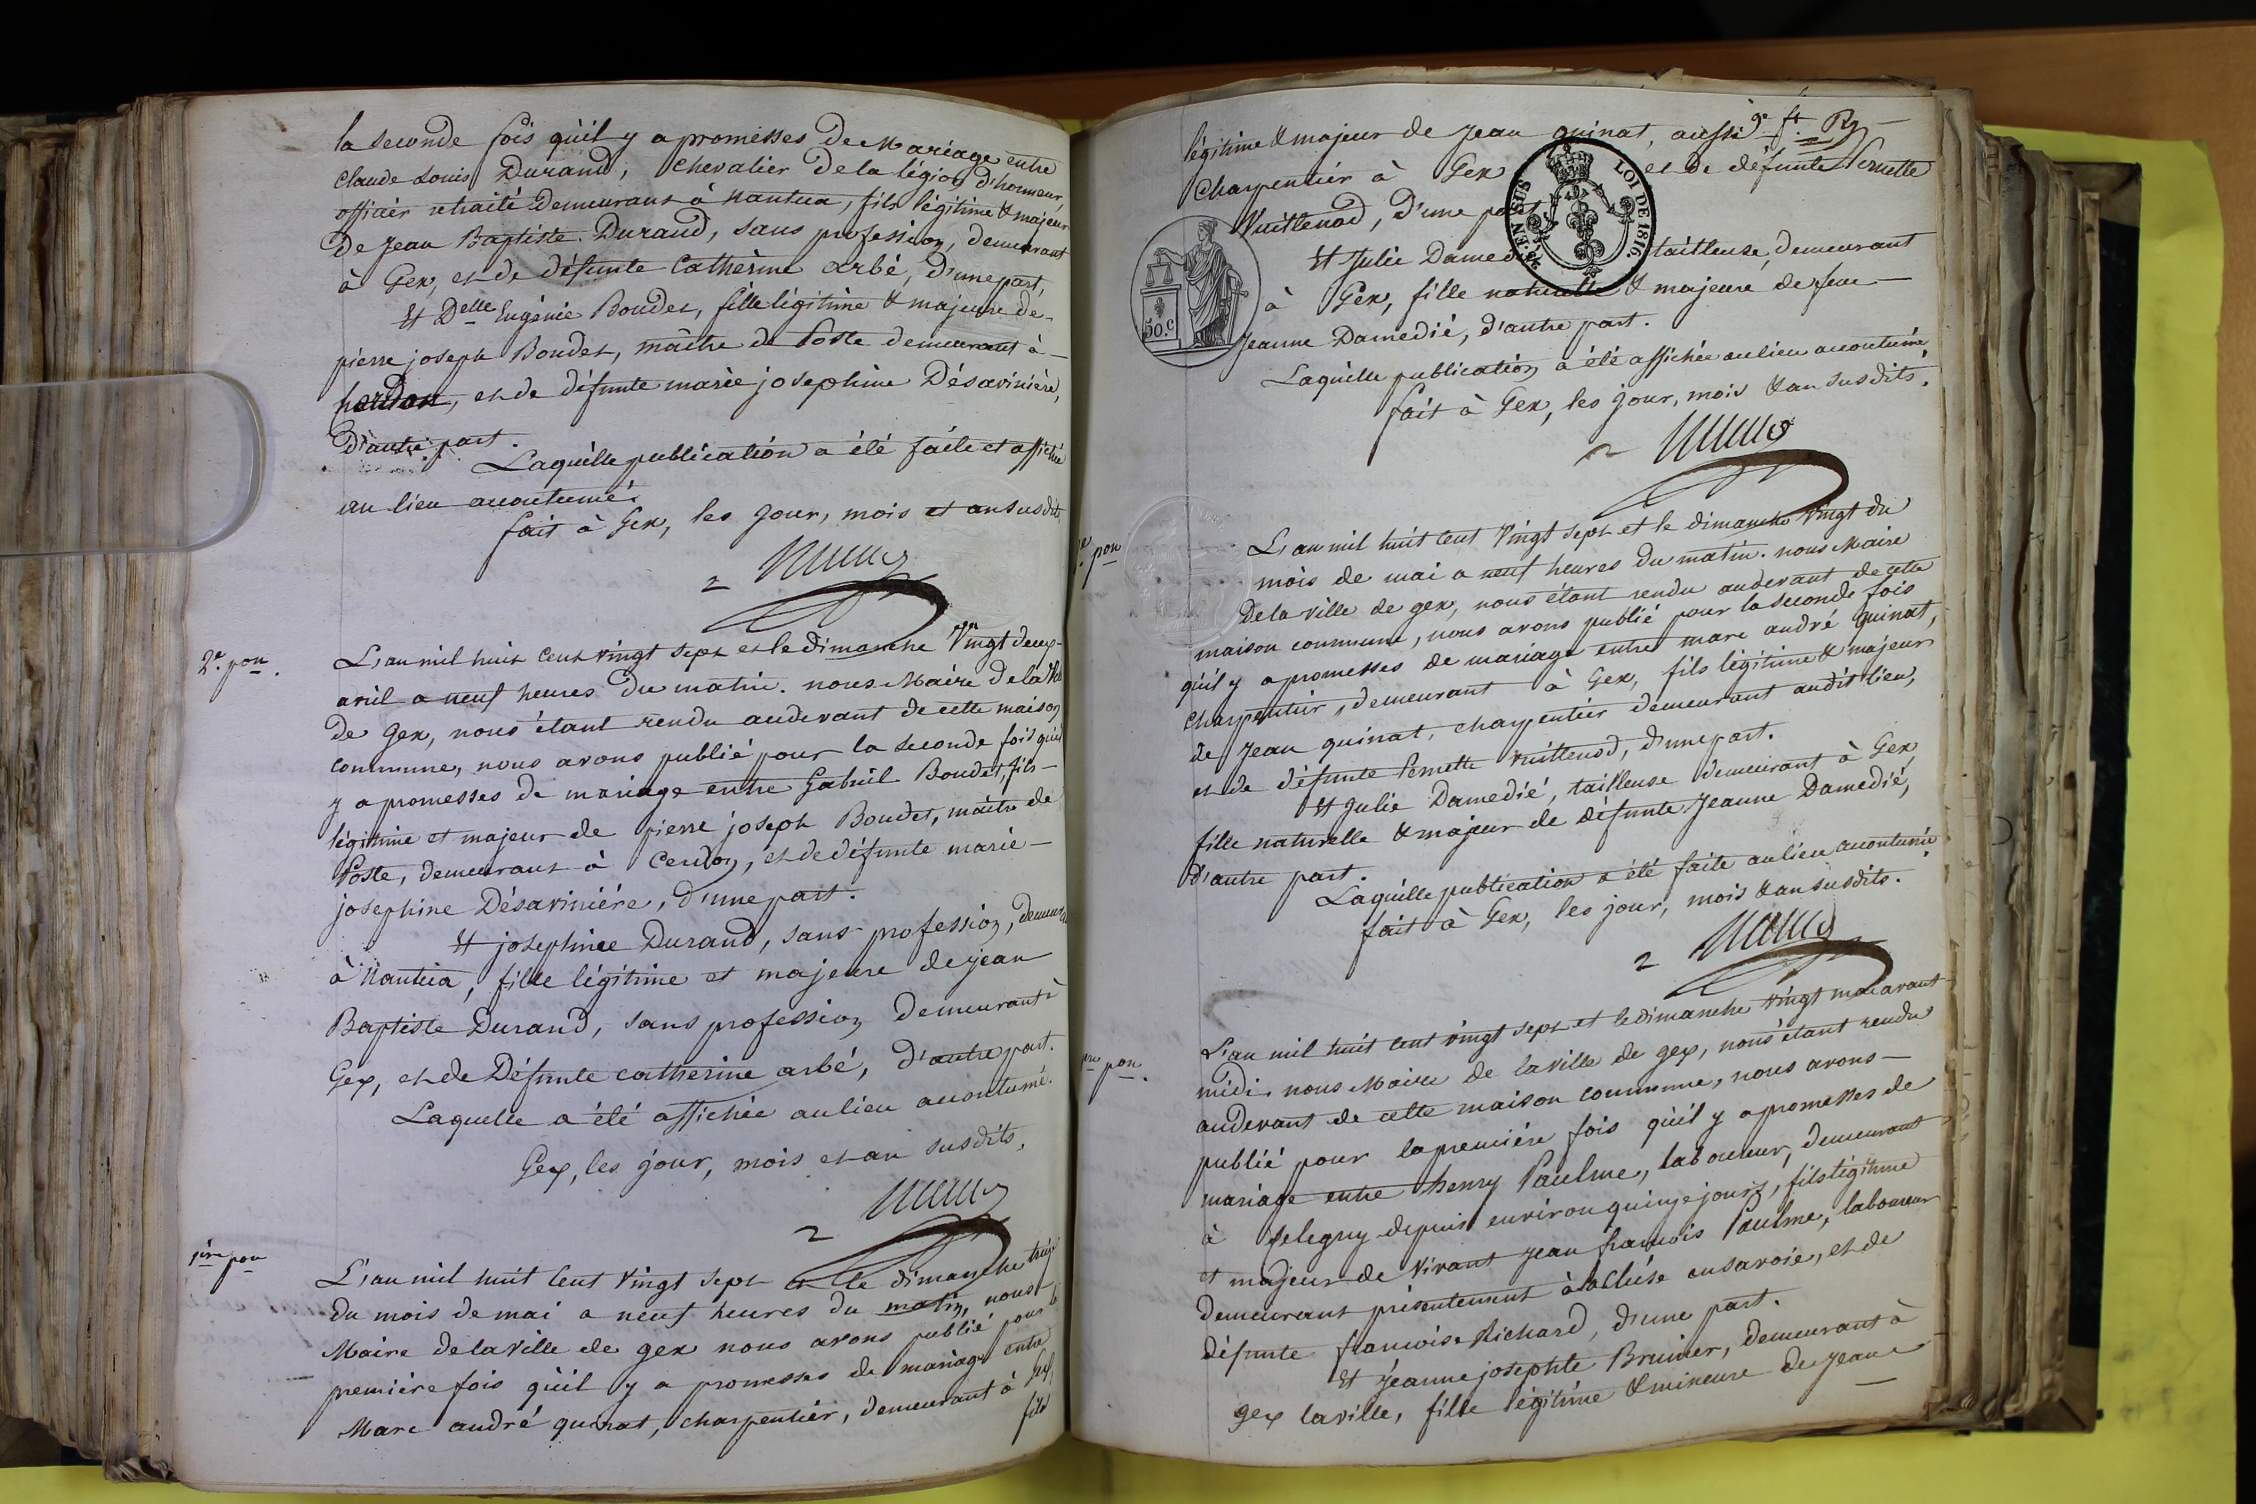 la seconde fois qu'il y a promesses de Mariage entre
Claude Louis Durand, Chevalier de la légion d'honneur,
officier retraité demeurant à Nantua, fils légitime & majeur
de Jean Baptiste Durand, sans profession, demeurant
à Gex, et de défunte Catherine arbé, d'une part,
Et Delle Eugénie Boudet, fille légitime & majeure de
pierre joseph Boudet, maître de Poste demeurant à
Cerdon, et de défunte marie josephine Désavinière,
D'autre part.
Laquelle publication a été faite et affichée
au lieu accoutumé.
fait à Gex, les jour, mois et an susdits
2e. pon.
L'an mil huit Cent vingt sept et le dimanche Vingt deux
avril a neuf heures du matin. nous Maire de la Vil
de Gex, nous étant rendu audevant de cette maison
commune, nous avons publié pour la seconde fois qu'il
y a promesses de mariage entre Gabriel Boudet, fils
légitime et majeur de pierre joseph Boudet, maître de
Poste, demeurant à Cerdon, et de défunte marie
josephine Désavinière, d'une part.
Et josephine Durand, sans profession, demeurant
à Nantua, fille légitime et majeure de jean
Baptiste Durand, sans profession demeurant à
Gex, et de Défunte catherine arbé, d'autre part.
Laquelle a été affichée au lieu accoutumé.
Gex, les jour, mois et an susdits.
1ère pon
L'an mil huit Cent Vingt sept et le dimanche treize
du mois de mai a neuf heures du matin, nous
Maire de la Ville de gex nous avons publié pour la
première fois qu'il y a promesses de mariage entre
Marc andré quinat, charpentier, demeurant à Gex,
fils
légitime & majeur de Jean quinat, aussi
Charpentier à Gex et de défunte Pernette
Vuillenod, D'une part
LOI DE 1816
EN SUS
50.c
Et Julie Damedié tailleuse, demeurant
à Gex, fille naturelle & majeure de feue
Jeanne Damedié, d'autre part.
Laquelle publication a été affichée au lieu accoutumé.
fait à Gex, les jour, mois & an susdits.
2e. pon
L'an mil huit Cent Vingt sept et le dimanche Vingt du
mois de mai a neuf heures du matin. nous Maire
De la ville de gex, nous étant rendu audevant de cette
maison commune, nous avons publié pour la seconde fois
qu'il y a promesses de mariage entre marc andré quinat,
Charpentier, demeurant à Gex, fils légitime & majeur
de Jean quinat, charpentier demeurant audit lieu,
et de défunte Pernette Vuillenod, d'une part.
Et Julie Damedié, tailleuse demeurant à Gex
fille naturelle & majeur de défunte Jeanne Damedié,
d'autre part.
Laquelle publication a été faite au lieu accoutumé
fait à Gex, les jour, mois & an susdits.
1ère pon.
L'an mil huit Cent vingt sept et le dimanche vingt mai avant
midi. nous Maire de la ville de gex, nous étant rendu
audevant de cette maison commune, nous avons
publié pour la première fois qu'il y a promesses de
mariage entre henry Paulme, laboureur, demeurant
à pelegny depuis environ quinze jours, fils légitime
et majeur de vivant Jean françois Paulme, laboureur
demeurant présentement à la Cluse en savoie, et de
défunte françoise Richard, d'une part.
Et Jeanne josephte Brunier, demeurant à
gex la ville, fille légitime & mineure de Jean